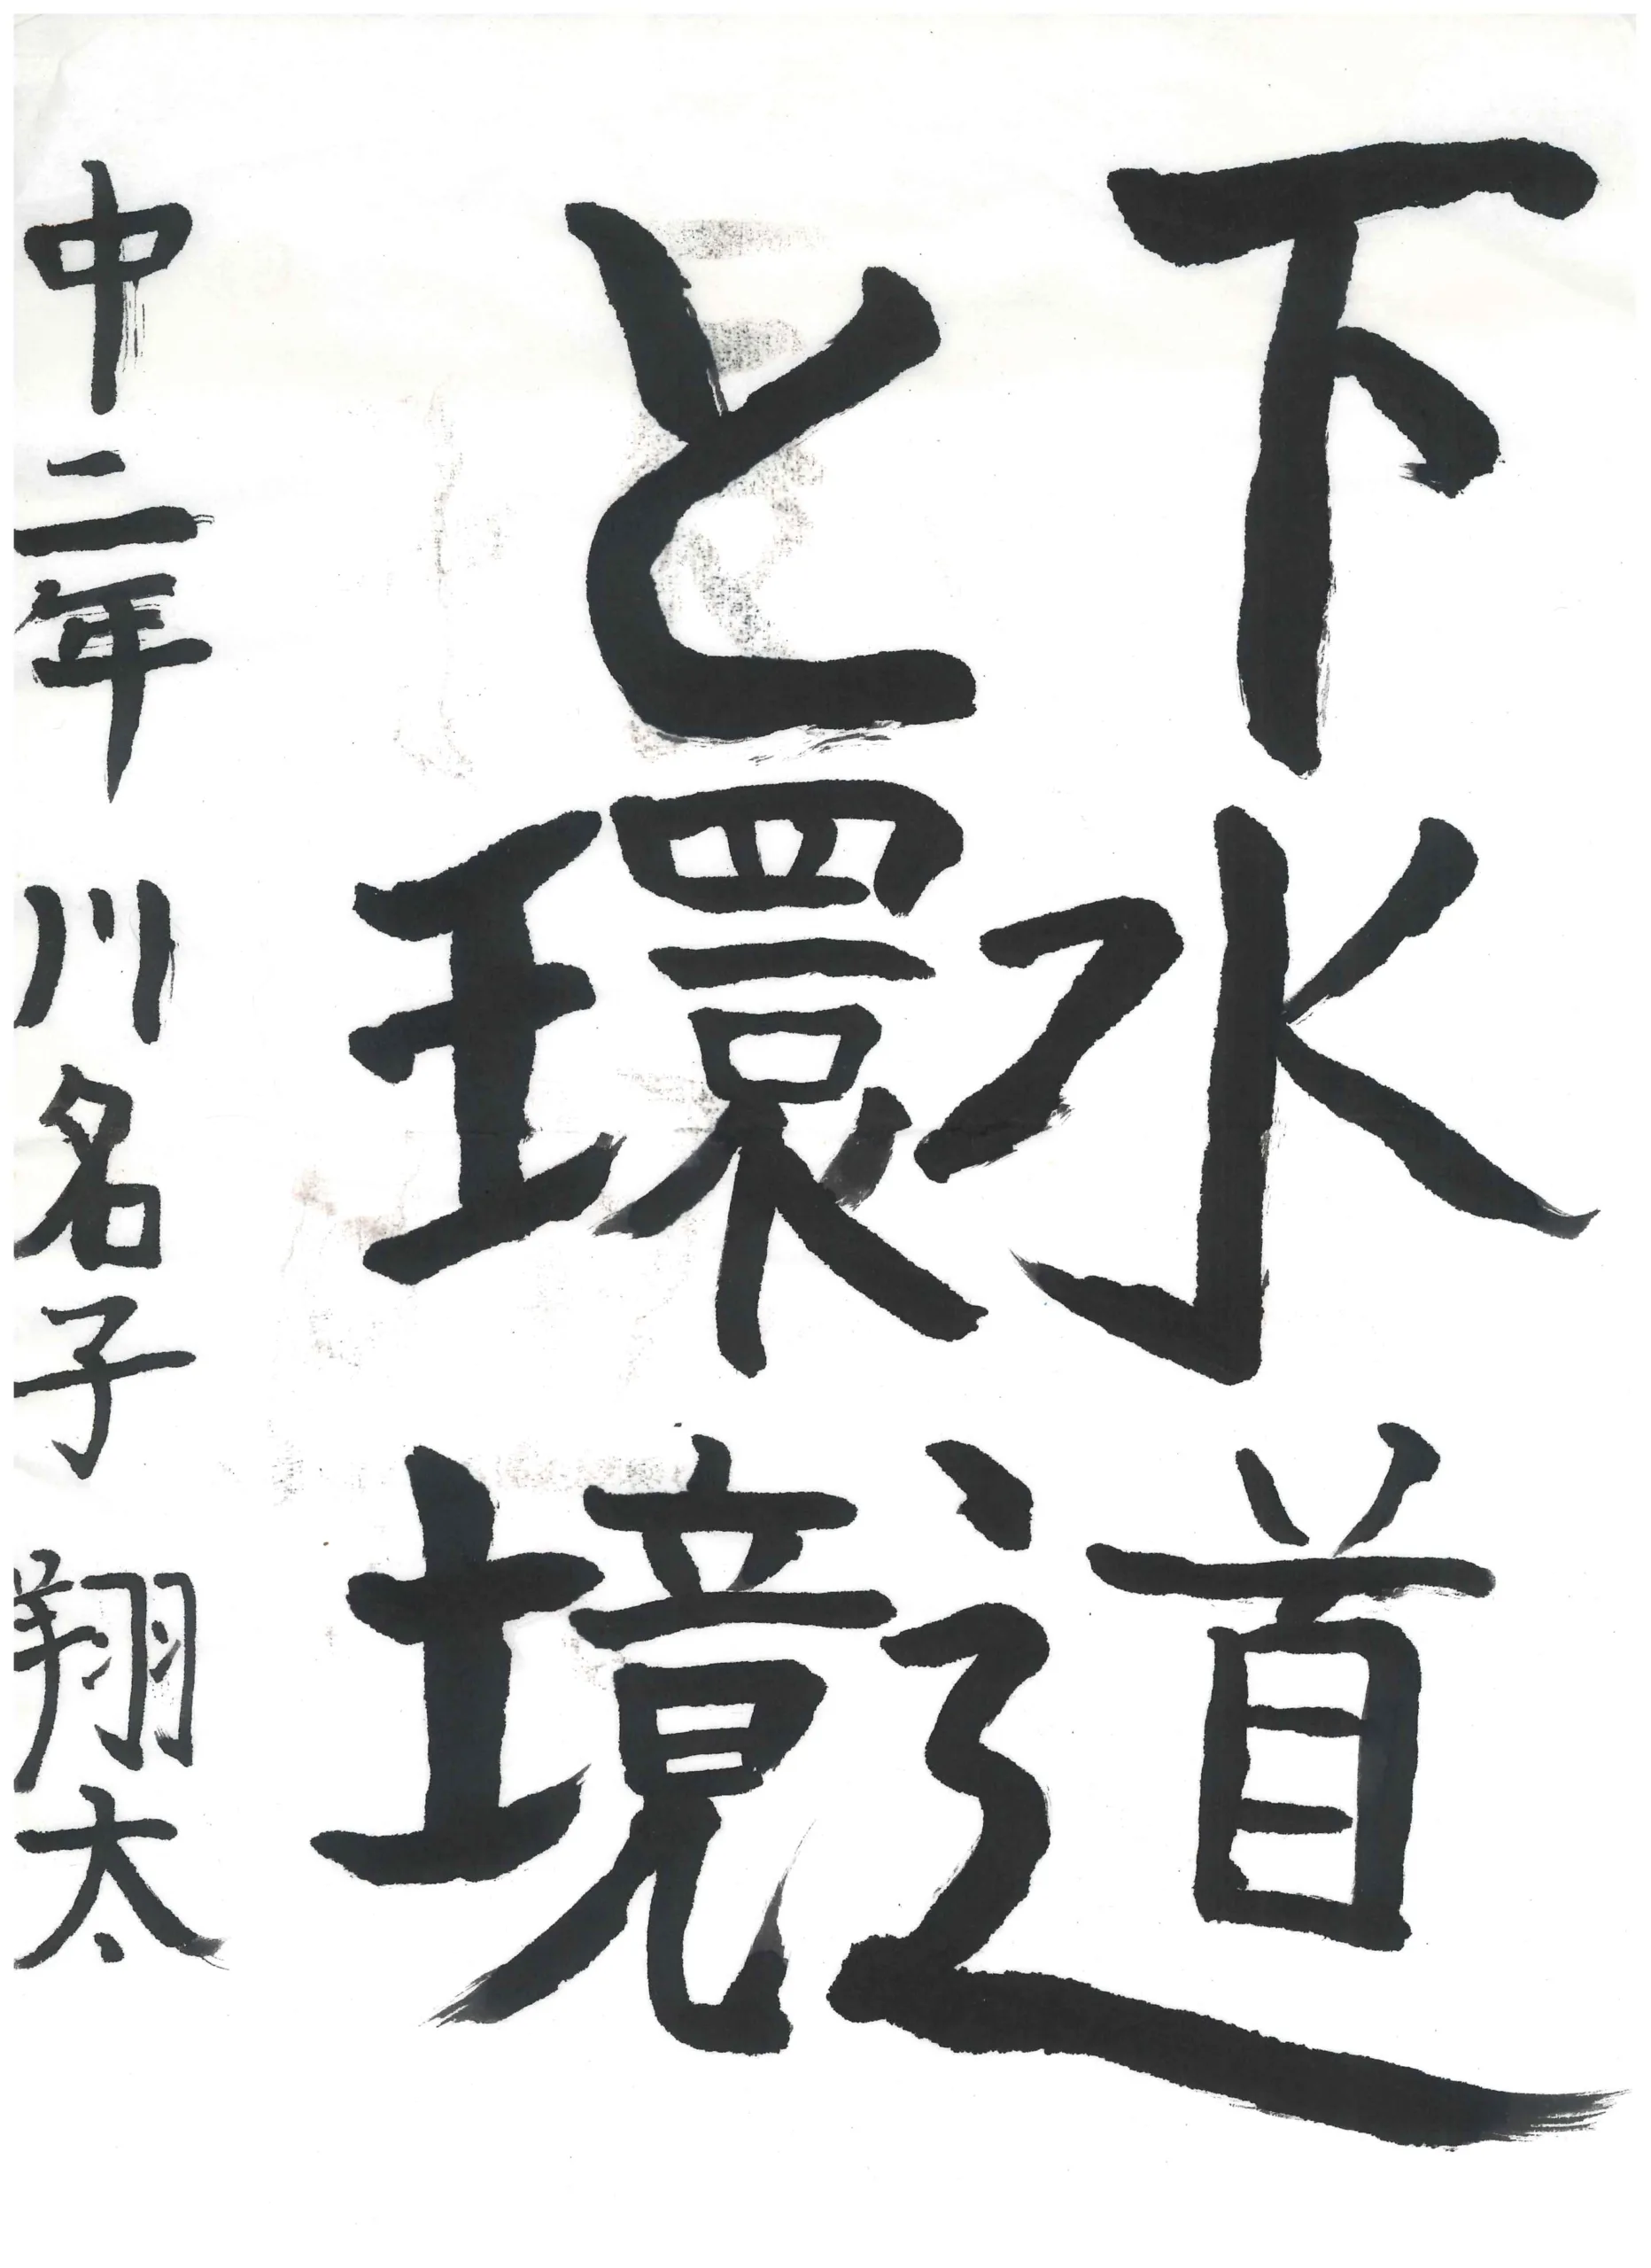 下水道
と環境
中二年 川名子 翔太